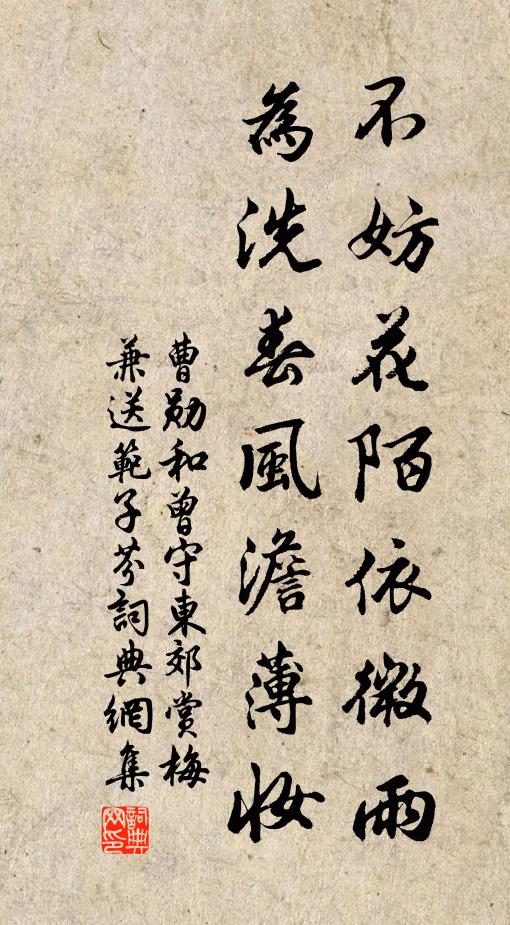 不妨花陌依微雨
為洗春風澹薄妝
曹勛和曾守東郊賞梅
兼送範子芬詞典網集
詞典網印